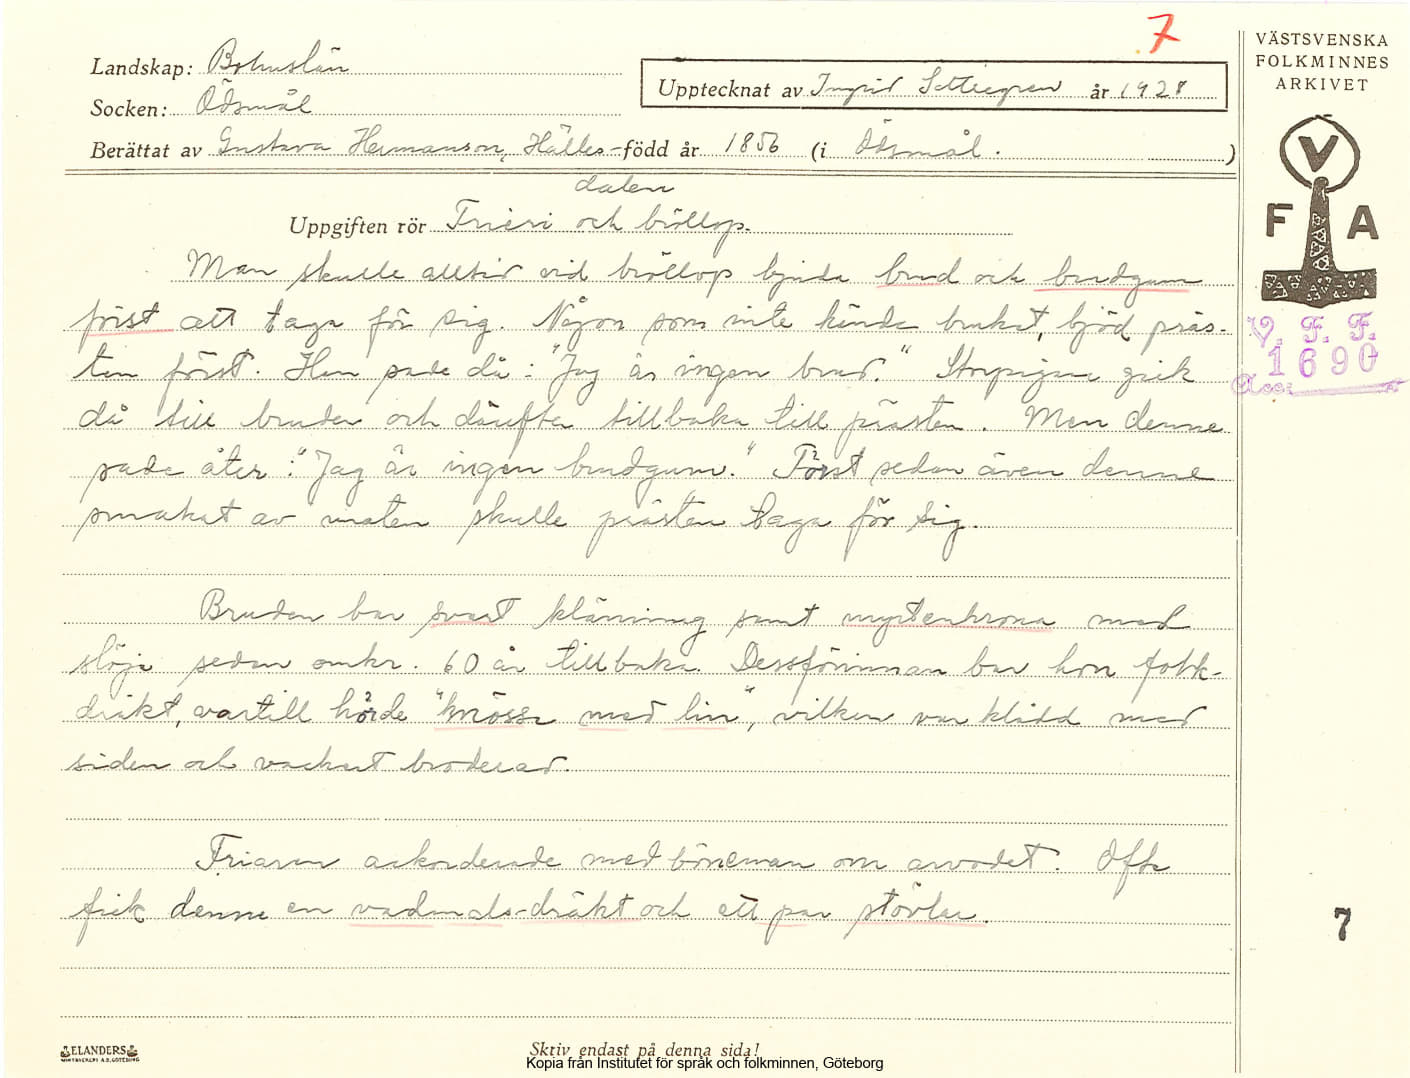 7
Landskap: Bohuslän
Socken: Ödsmål
Upptecknat av Ingrid Settergren år 1928
Berättat av Gustava Hermanson, Hälle-
dalen född år 1856 (i Ödsmål. )
Uppgiften rör Frieri och bröllop.
Man skulle alltid vid bröllop bjuda brud och brudgum
först att taga för sig. Någon som inte kände bruket, bjöd präs-
ten först. Han sade då: "Jag är ingen brud." Stopigan gick
då till bruden och därefter tillbaka till prästen. Men denne
sade åter: "Jag är ingen brudgum." Först sedan även denne
smakat av maten skulle prästen taga för sig.
Bruden bar svart klänning samt myrtenkrona med
slöja sedan omkr. 60 år tillbaka. Dessförinnan bar hon folk-
dräkt, vartill hörde "mössa med lin", vilken var klädd med
siden och vackert broderad.
Friaren ackorderade med böneman om arvodet. Ofta
fick denne en vadmals-dräkt och ett par stövlar.
VÄSTSVENSKA
FOLKMINNES
ARKIVET
V
F A
V. F. F.
1690
Acc:
7
ELANDERS
Skriv endast på denna sida!
Kopia från Institutet för språk och folkminnen, Göteborg